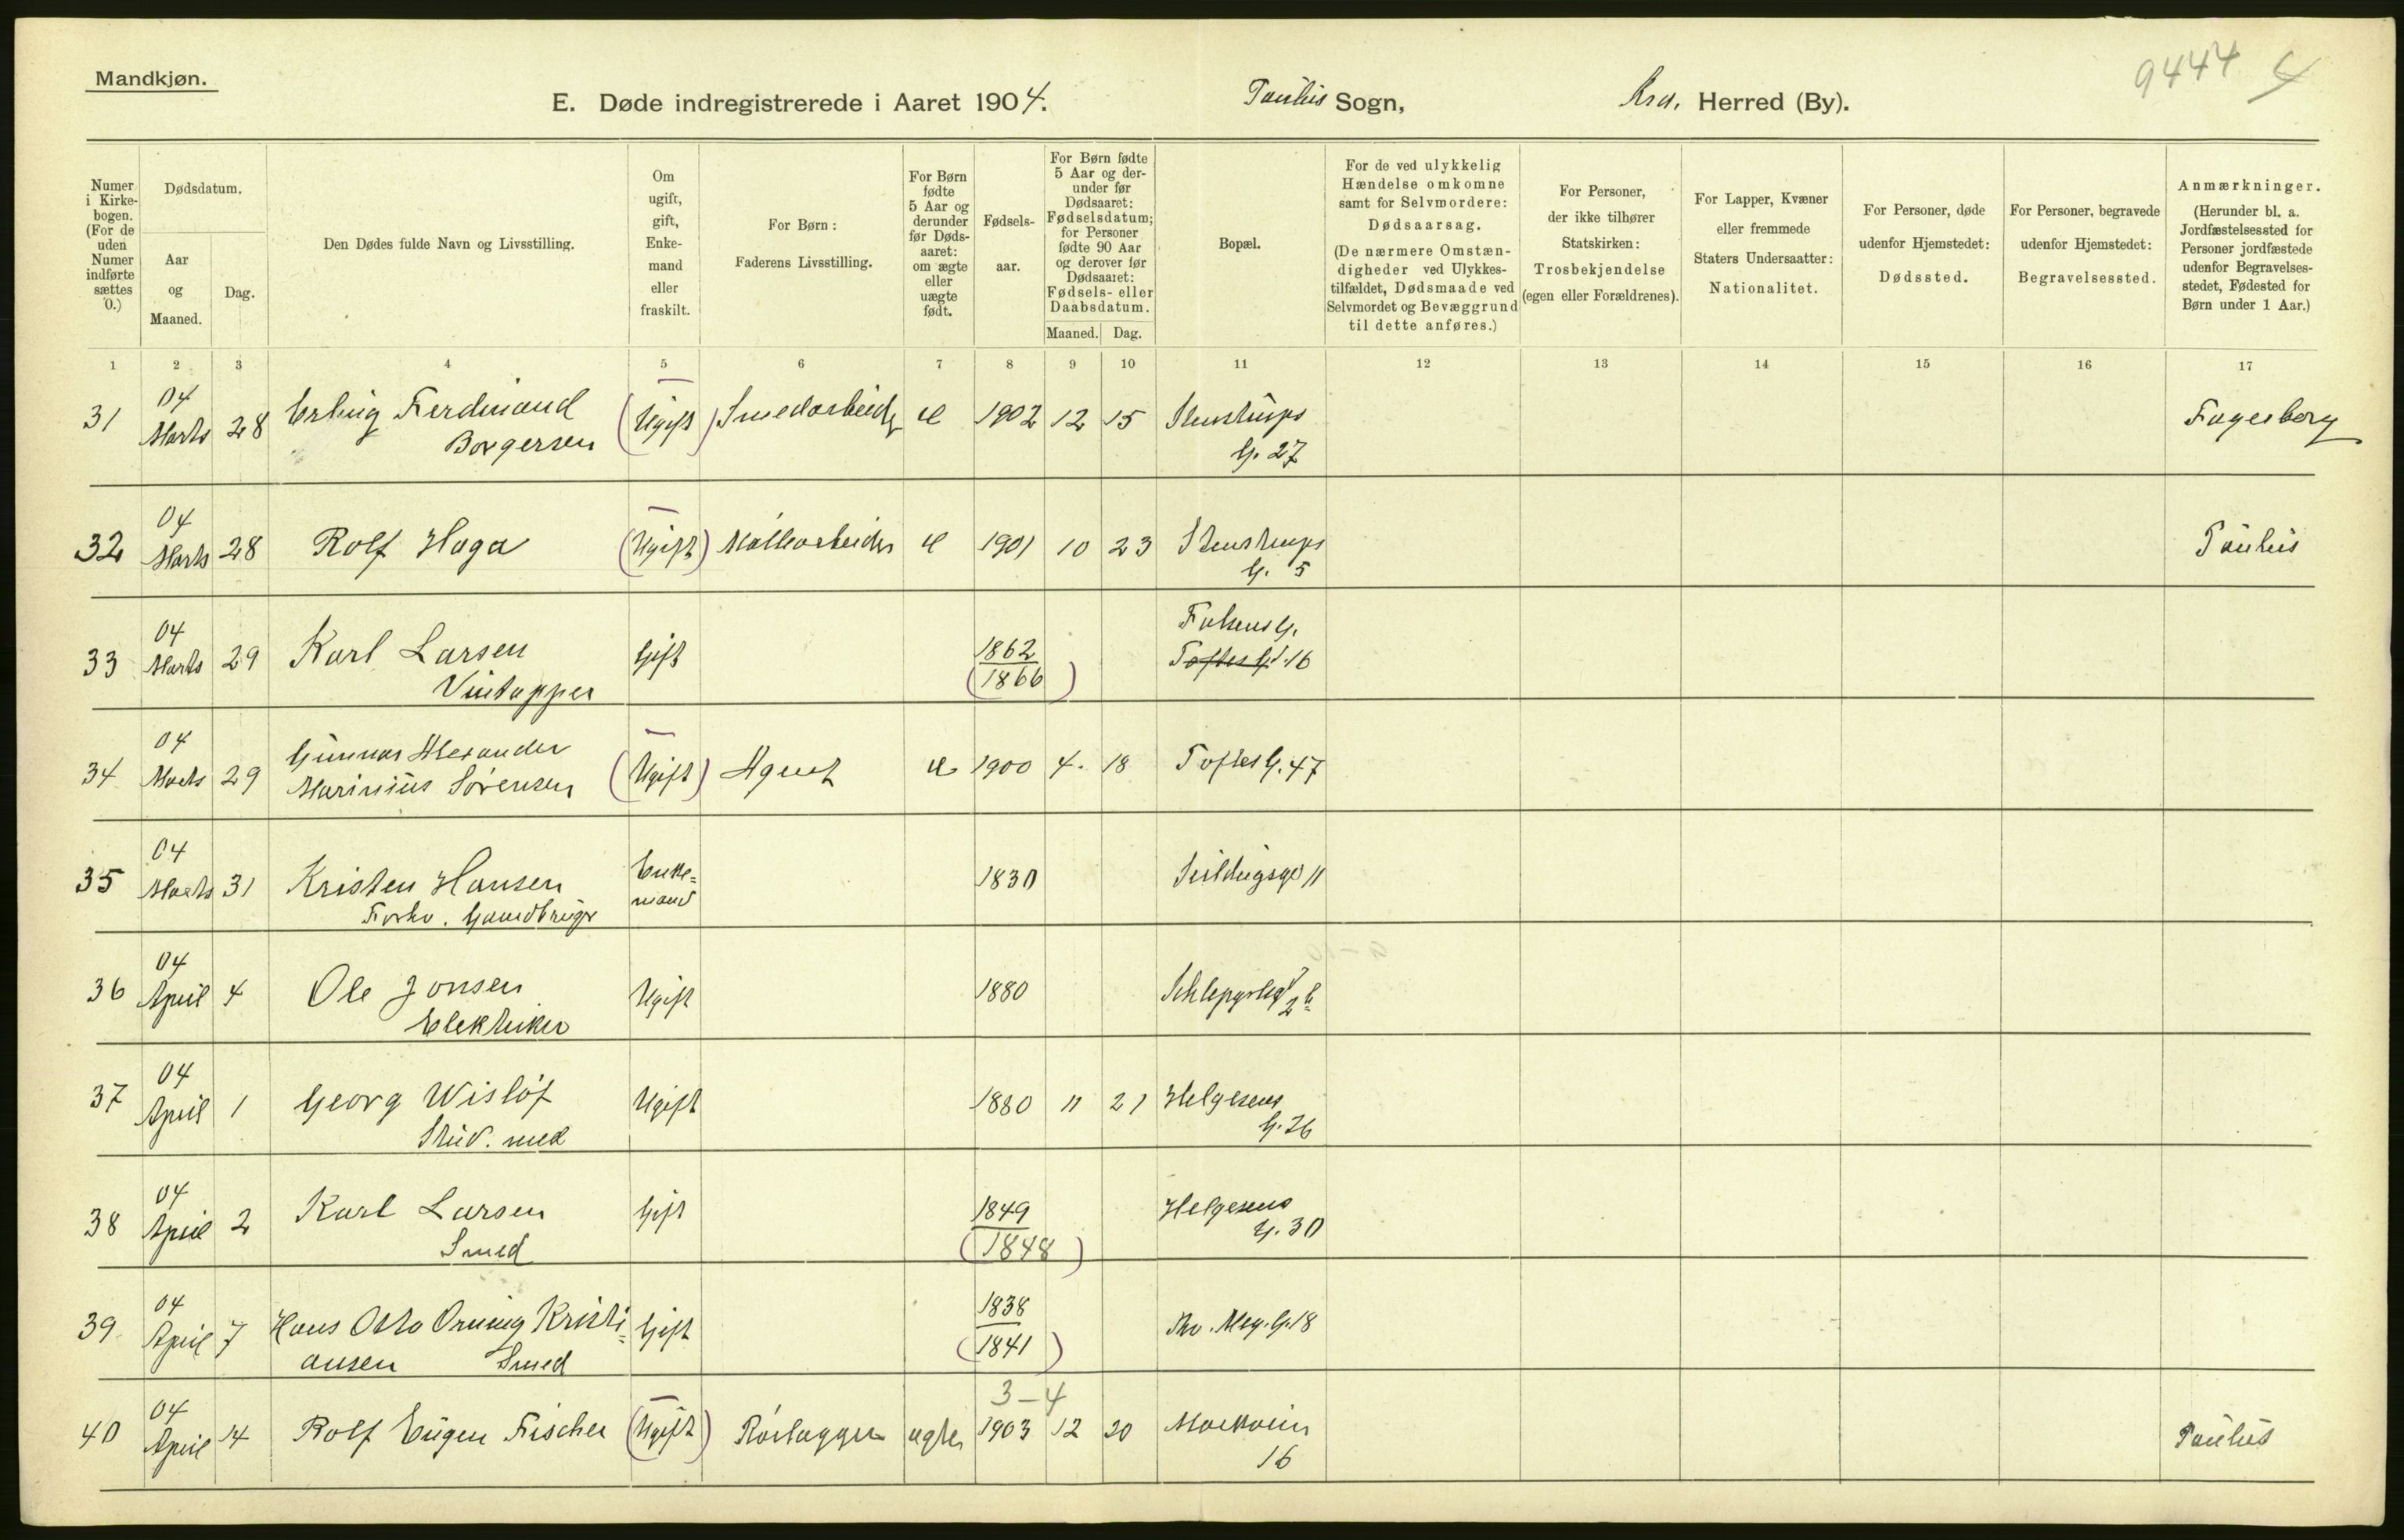 Mandkjøn.
9444 4
E. Døde indregistrerede i Aaret 1904. Paulus Sogn, Kra. Herred (By).
Numer i Kirkebogen. (For de uden Numer indførte sættes 0.)
Dødsdatum.
Aar og Maaned.
Dag.
Den Dødes fulde Navn og Livsstilling.
Om ugift, gift, Enkemand eller fraskilt.
For Børn: Faderens Livsstilling.
For Børn fødte 5 Aar og derunder før Dødsaaret: om ægte eller uægte født.
Fødselsaar.
For Børn fødte 5 Aar og derunder før Dødsaaret: Fødselsdatum; for Personer fødte 90 Aar og derover før Dødsaaret: Fødsels- eller Daabsdatum.
Maaned. Dag.
Bopæl.
For de ved ulykkelig Hændelse omkomne samt for Selvmordere: Dødsaarsag. (De nærmere Omstændigheder ved Ulykkestilfældet, Dødsmaade ved Selvmordet og Bevæggrund til dette anføres.)
For Personer, der ikke tilhører Statskirken: Trosbekjendelse (egen eller Forældrenes).
For Lapper, Kvæner eller fremmede Staters Undersaatter: Nationalitet.
For Personer, døde udenfor Hjemstedet: Dødssted.
For Personer, begravede udenfor Hjemstedet: Begravelsessted.
Anmærkninger. (Herunder bl. a. Jordfæstelsessted for Personer jordfæstede udenfor Begravelsesstedet, Fødested for Børn under 1 Aar.)
1 2 3 4 5 6 7 8 9 10 11 12 13 14 15 16 17
31 04 Marts 28 Erling Ferdinand Borgersen (Ugift) Smedarbeider 1902 12 15 Stenstrups G. 27 Fagerborg
32 04 Marts 28 Rolf Haga (Ugift) Møllearbeider 1901 10 23 Stenstrups G. 5 Paulus
33 04 Marts 29 Karl Larsen Vintapper Gift 1862 (1866) Falsens G. Toftes G. 16
34 04 Marts 29 Gunnar Alexander Marinius Sørensen (Ugift) Agent 1900 4. 18 Toftes G. 47
35 04 Marts 31 Kristen Hansen Forhv. Gaardbruger Enke=mand 1830 11
36 04 April 4 Ole Jonsen Elektriker Ugift 1880
37 04 April 1 Georg Wisløf Stud. med Ugift 1880 11 21 Helgesens G. 26
38 04 April 2 Karl Larsen Smed Gift 1849 (1848) Helgesens G. 30
39 04 April 7 Hans Otto Orning Kristi=ansen Smed Gift 1838 (1841) Thv. Mey. G. 18
3-4
40 04 April 14 Rolf Eugen Fischer (Ugift) Rørlægger ægte 1903 12 20 Markvein 16 Paulus